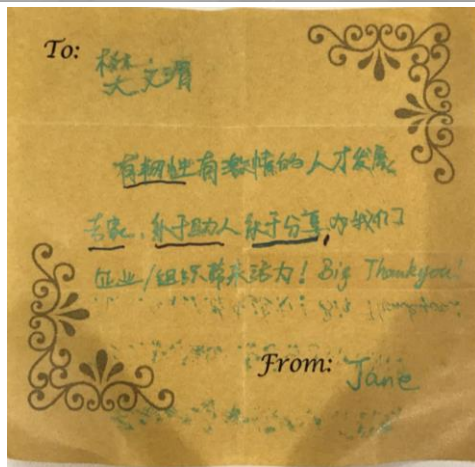 To: 樊文
有韧性有激情的人才发展
专家,乐于助人 乐于分享,为我们
企业/组织带来活力! Big Thankyou!
From: Jane